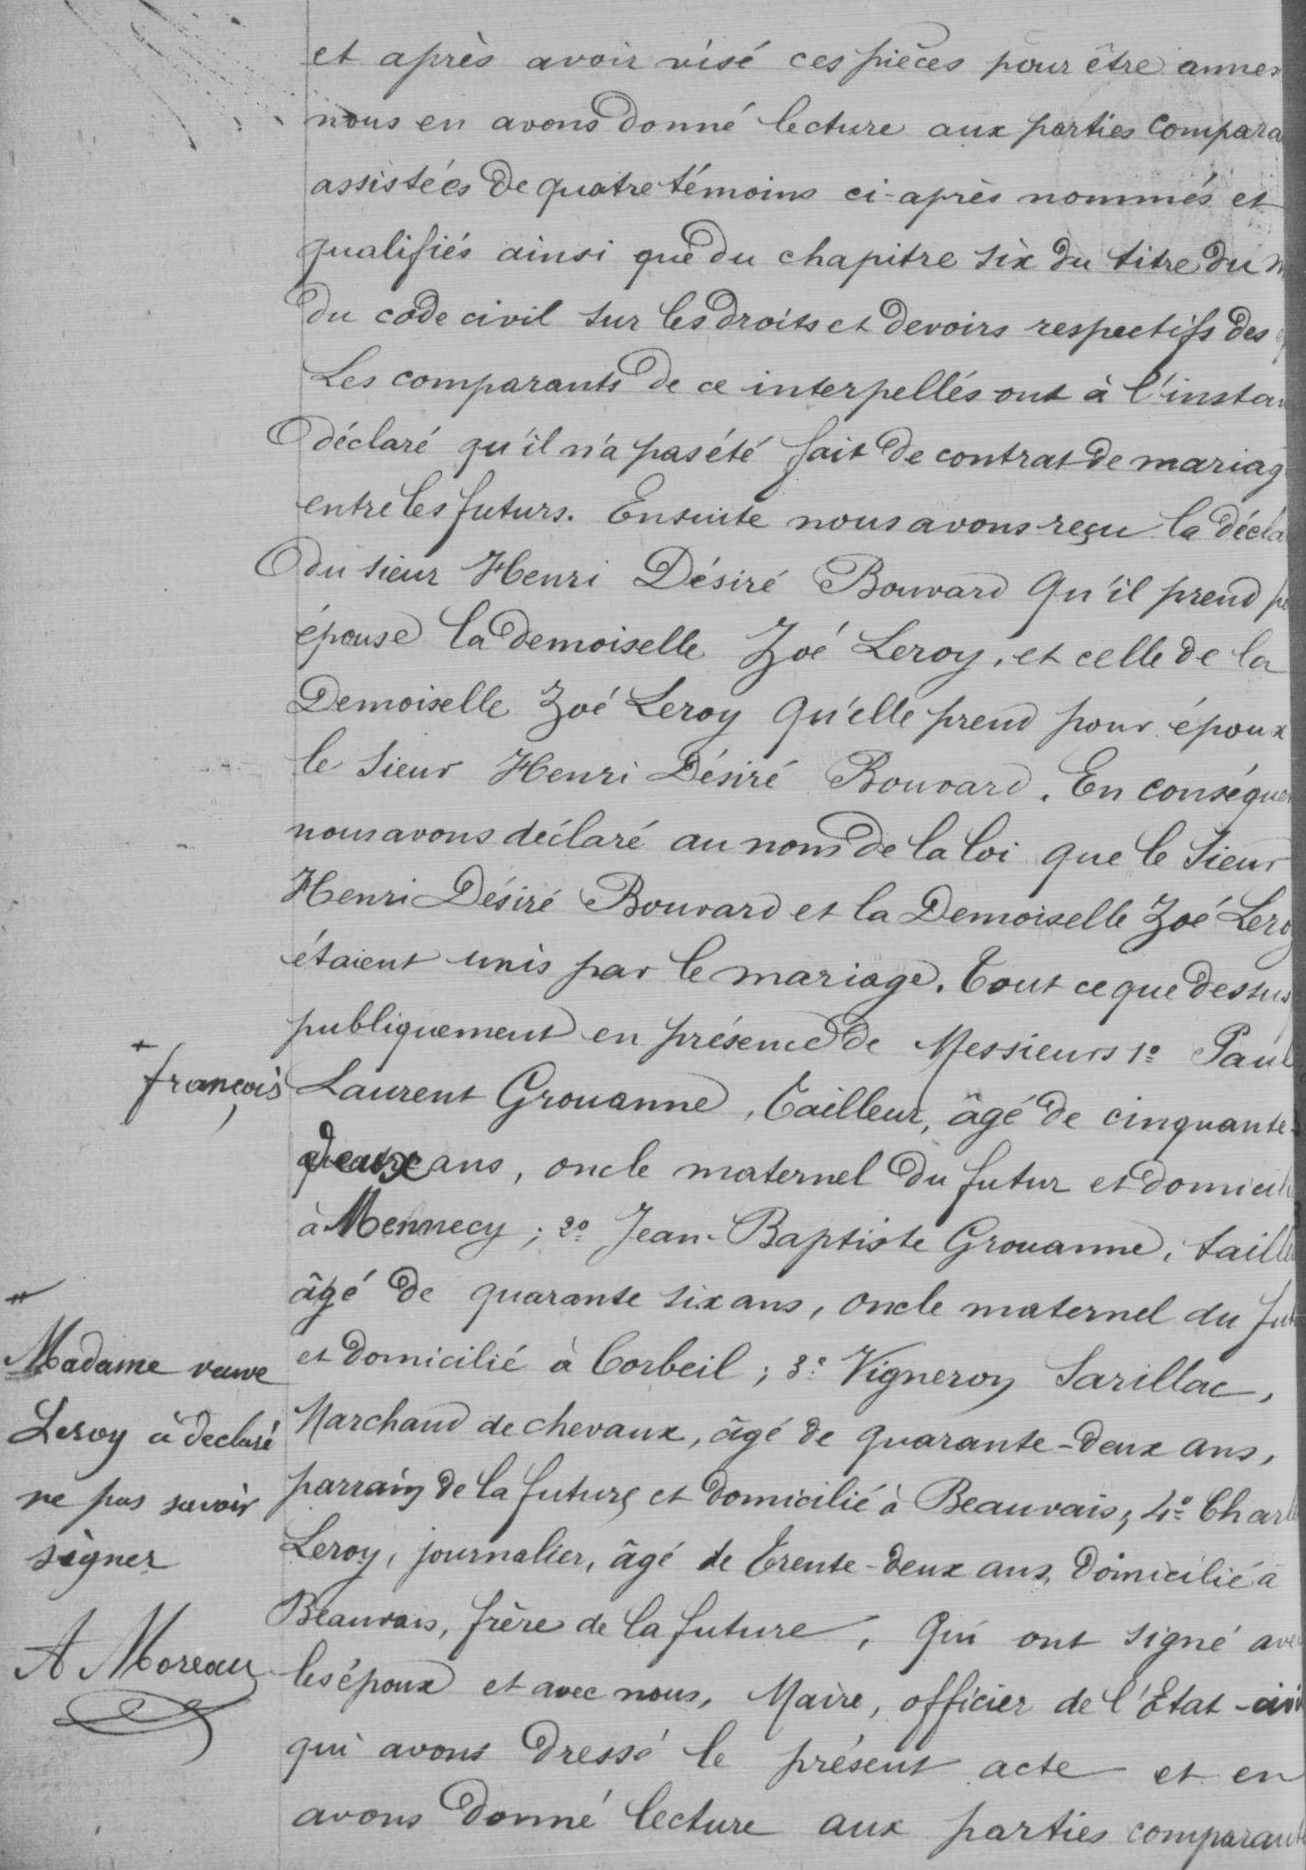 et après avoir visé ces pièces pour être annex
nous en avons donné lecture aux parties compara
assistées de quatre témoins ci-après nommés et
qualifiés ainsi que du chapitre six du titre du
du code civil sur les droits et devoirs respectifs des
Les comparants de ce interpellés ont à l'instan
déclaré qu'il n'a pas été fait de contrat de mariag
entre les futurs. Ensuite nous avons reçu la décla
du sieur Henri Désiré Bouvard qu'il prend po
épouse la demoiselle Zoé Leroy, et celle de la
Demoiselle Zoé Leroy qu'elle prend pour époux
le sieur Henri Désiré Bouvard. En conséquen
nous avons déclaré au nom de la loi que le sieur
Henri Désiré Bouvard et la Demoiselle Zoé Leroy
étaient unis par le mariage. Tout ce que dessus
publiquement en présence de Messieurs 1º Paul
+
françois
Laurent Grouanne, Tailleur, âgé de cinquante-
deux ans, oncle maternel du futur et domicili
à Mennecy; 2º Jean-Baptiste Grouanne, taille
âgé de quarante six ans, oncle maternel du fut
et domicilié à Corbeil; 3º Vigneron Sarillac,
Marchand de chevaux, âgé de quarante-deux ans,
parrain de la future et domicilié à Beauvais; 4º Charle
Leroy, journalier, âgé de trente-deux ans, Domicilié à
Beauvais, frère de la future, qui ont signé avec
les époux et avec nous, Maire, officier de l'Etat-civi
qui avons dressé le présent acte et en
avons donné lecture aux parties comparante
#
Madame veuve
Leroy a déclaré
ne pas savoir
signer
A Moreau